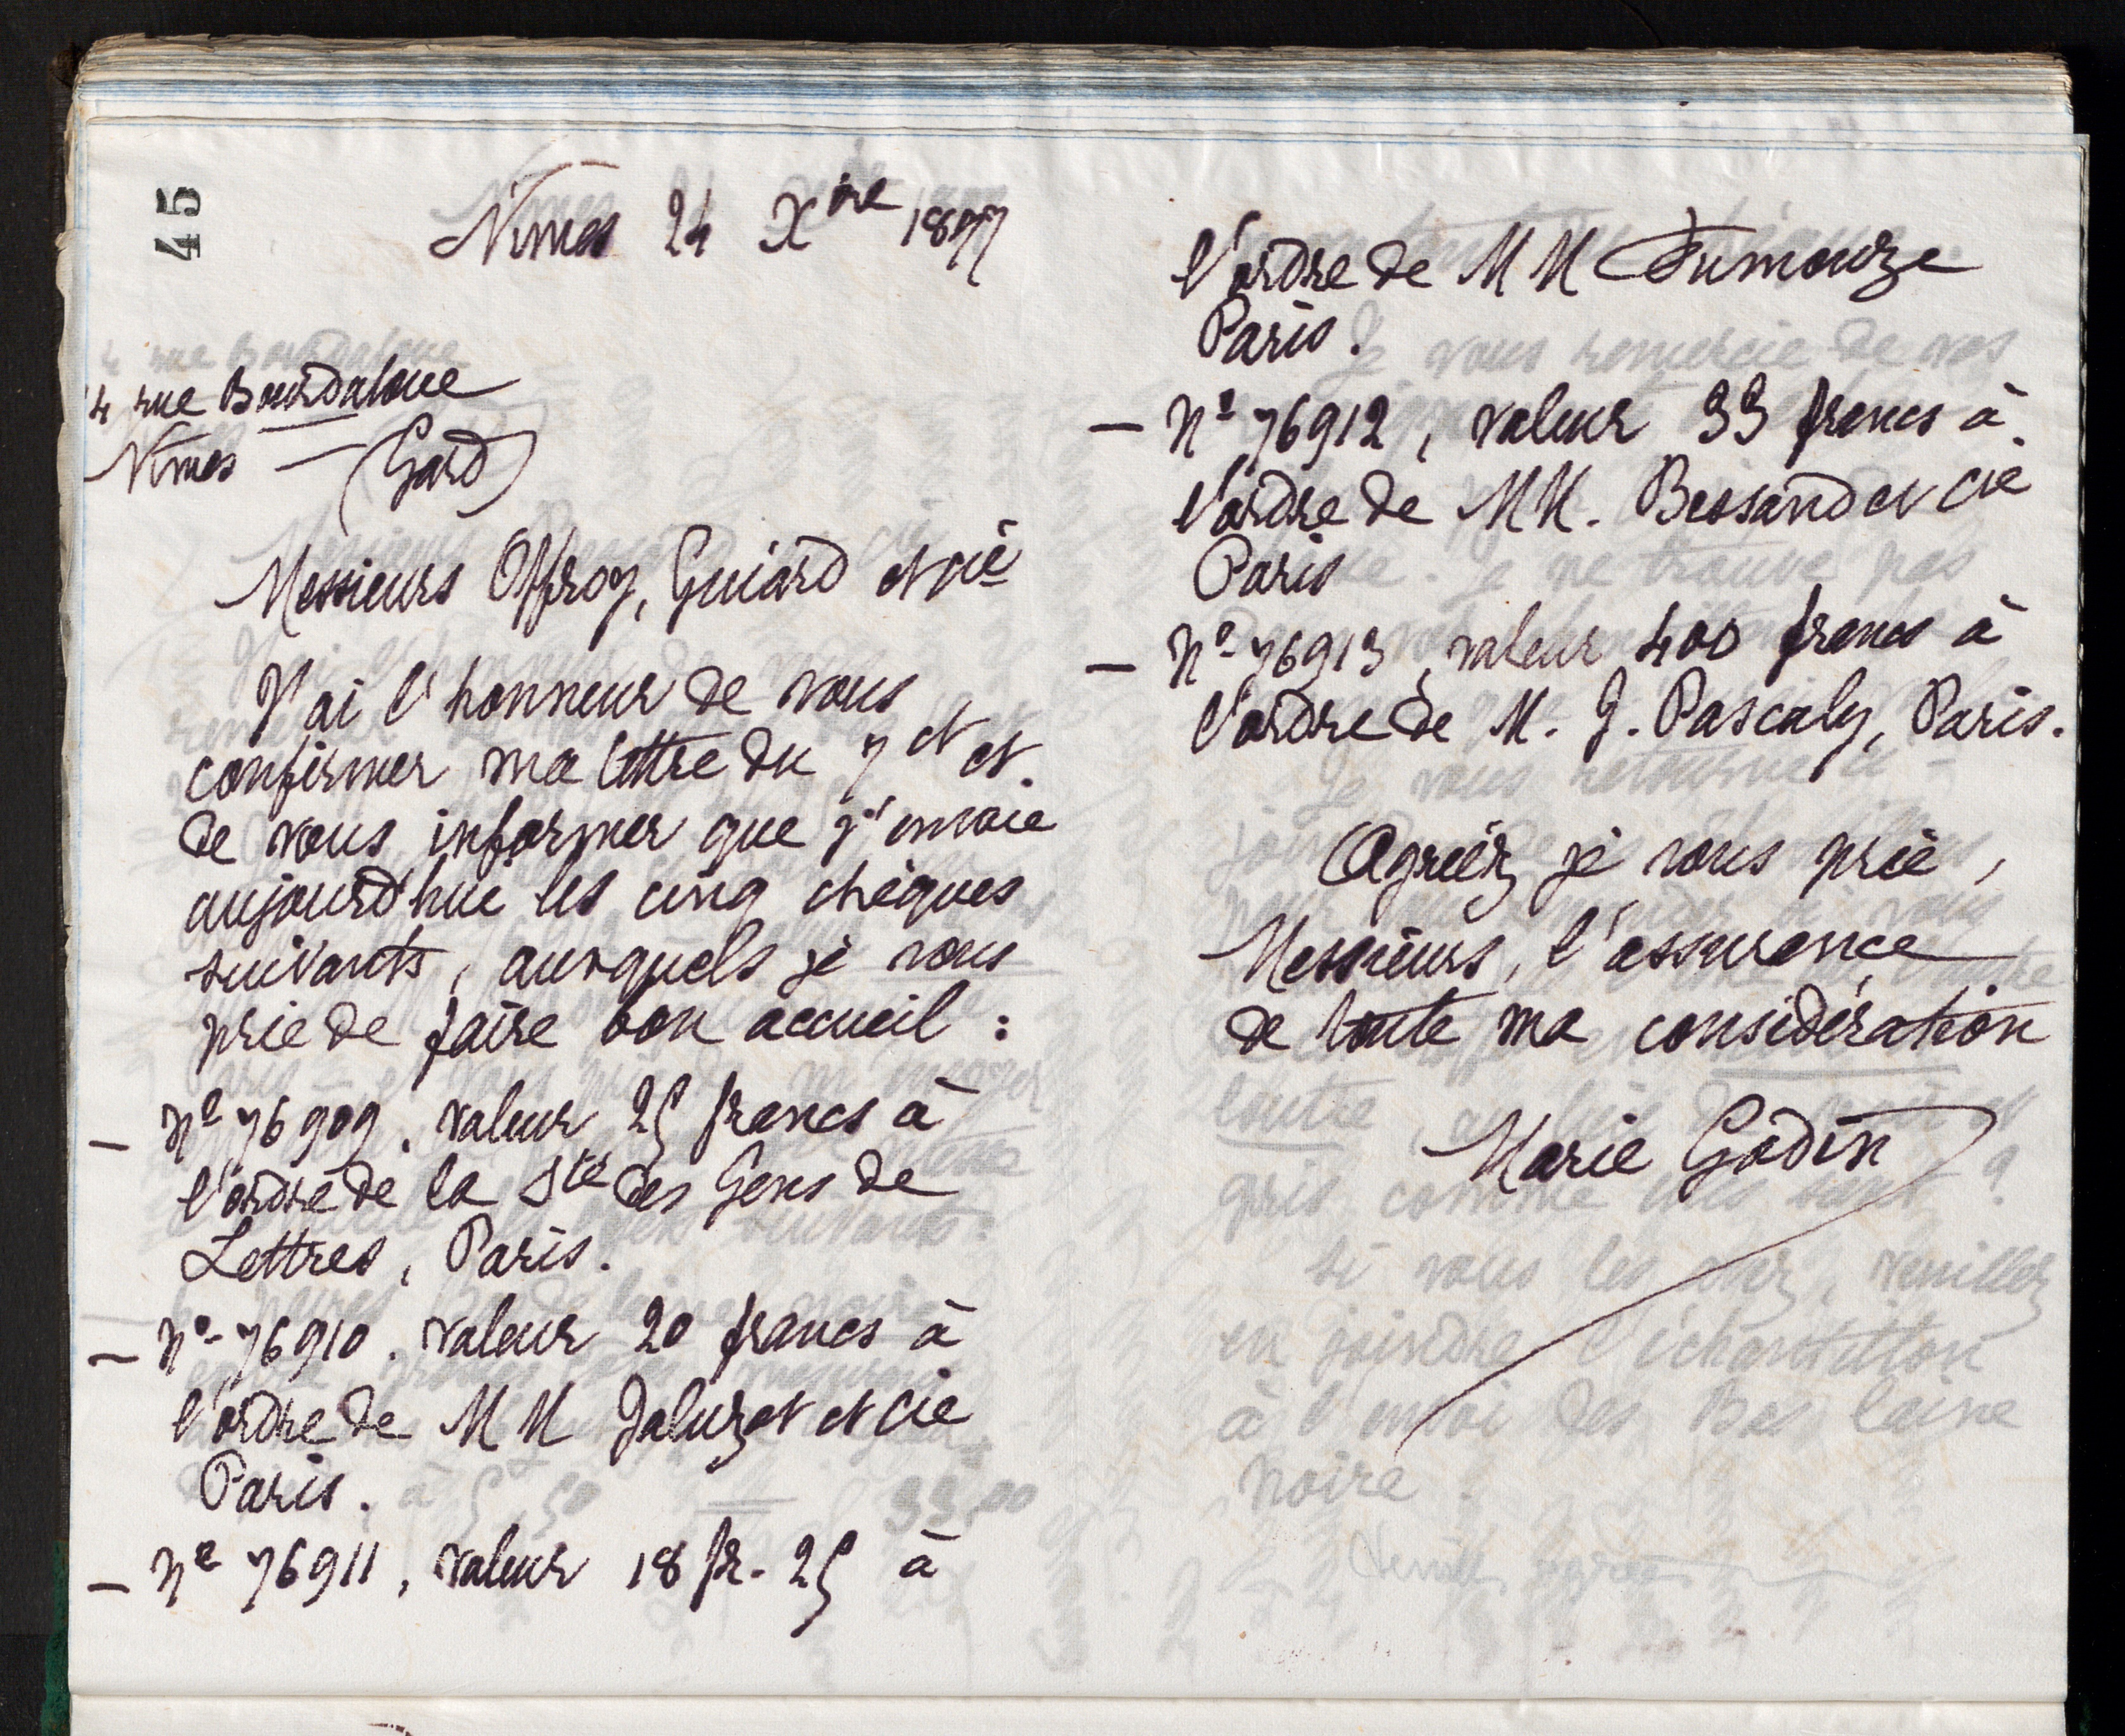 45
Nimes 24 Xbre 1897
14 rue Bourdaloue
Nimes — (Gard)
Messieurs Offroy, Guiard et cie
J'ai l'honneur de vous
confirmer ma lettre du 7 ct et
de vous informer que j'envoie
aujourd'hui les cinq chèques
suivants, auxquels je vous
prie de faire bon accueil :
— No 76909. valeur 25 francs à
l'ordre de la Sté des Gens de
Lettres, Paris.
— No 76910. valeur 20 francs à
l'ordre de MM Jaluzot et cie
Paris.
— No 76911, valeur 18 fr. 25 à
l'ordre de MM Fumouze
Paris.
— No 76912, valeur 33 francs à
l'ordre de MM. Bessand et cie
Paris
— No 76913, valeur 400 francs à
l'ordre de M. J. Pascaly, Paris.
Agréez je vous prie,
Messieurs, l'assurance
de toute ma considération
Marie Godin